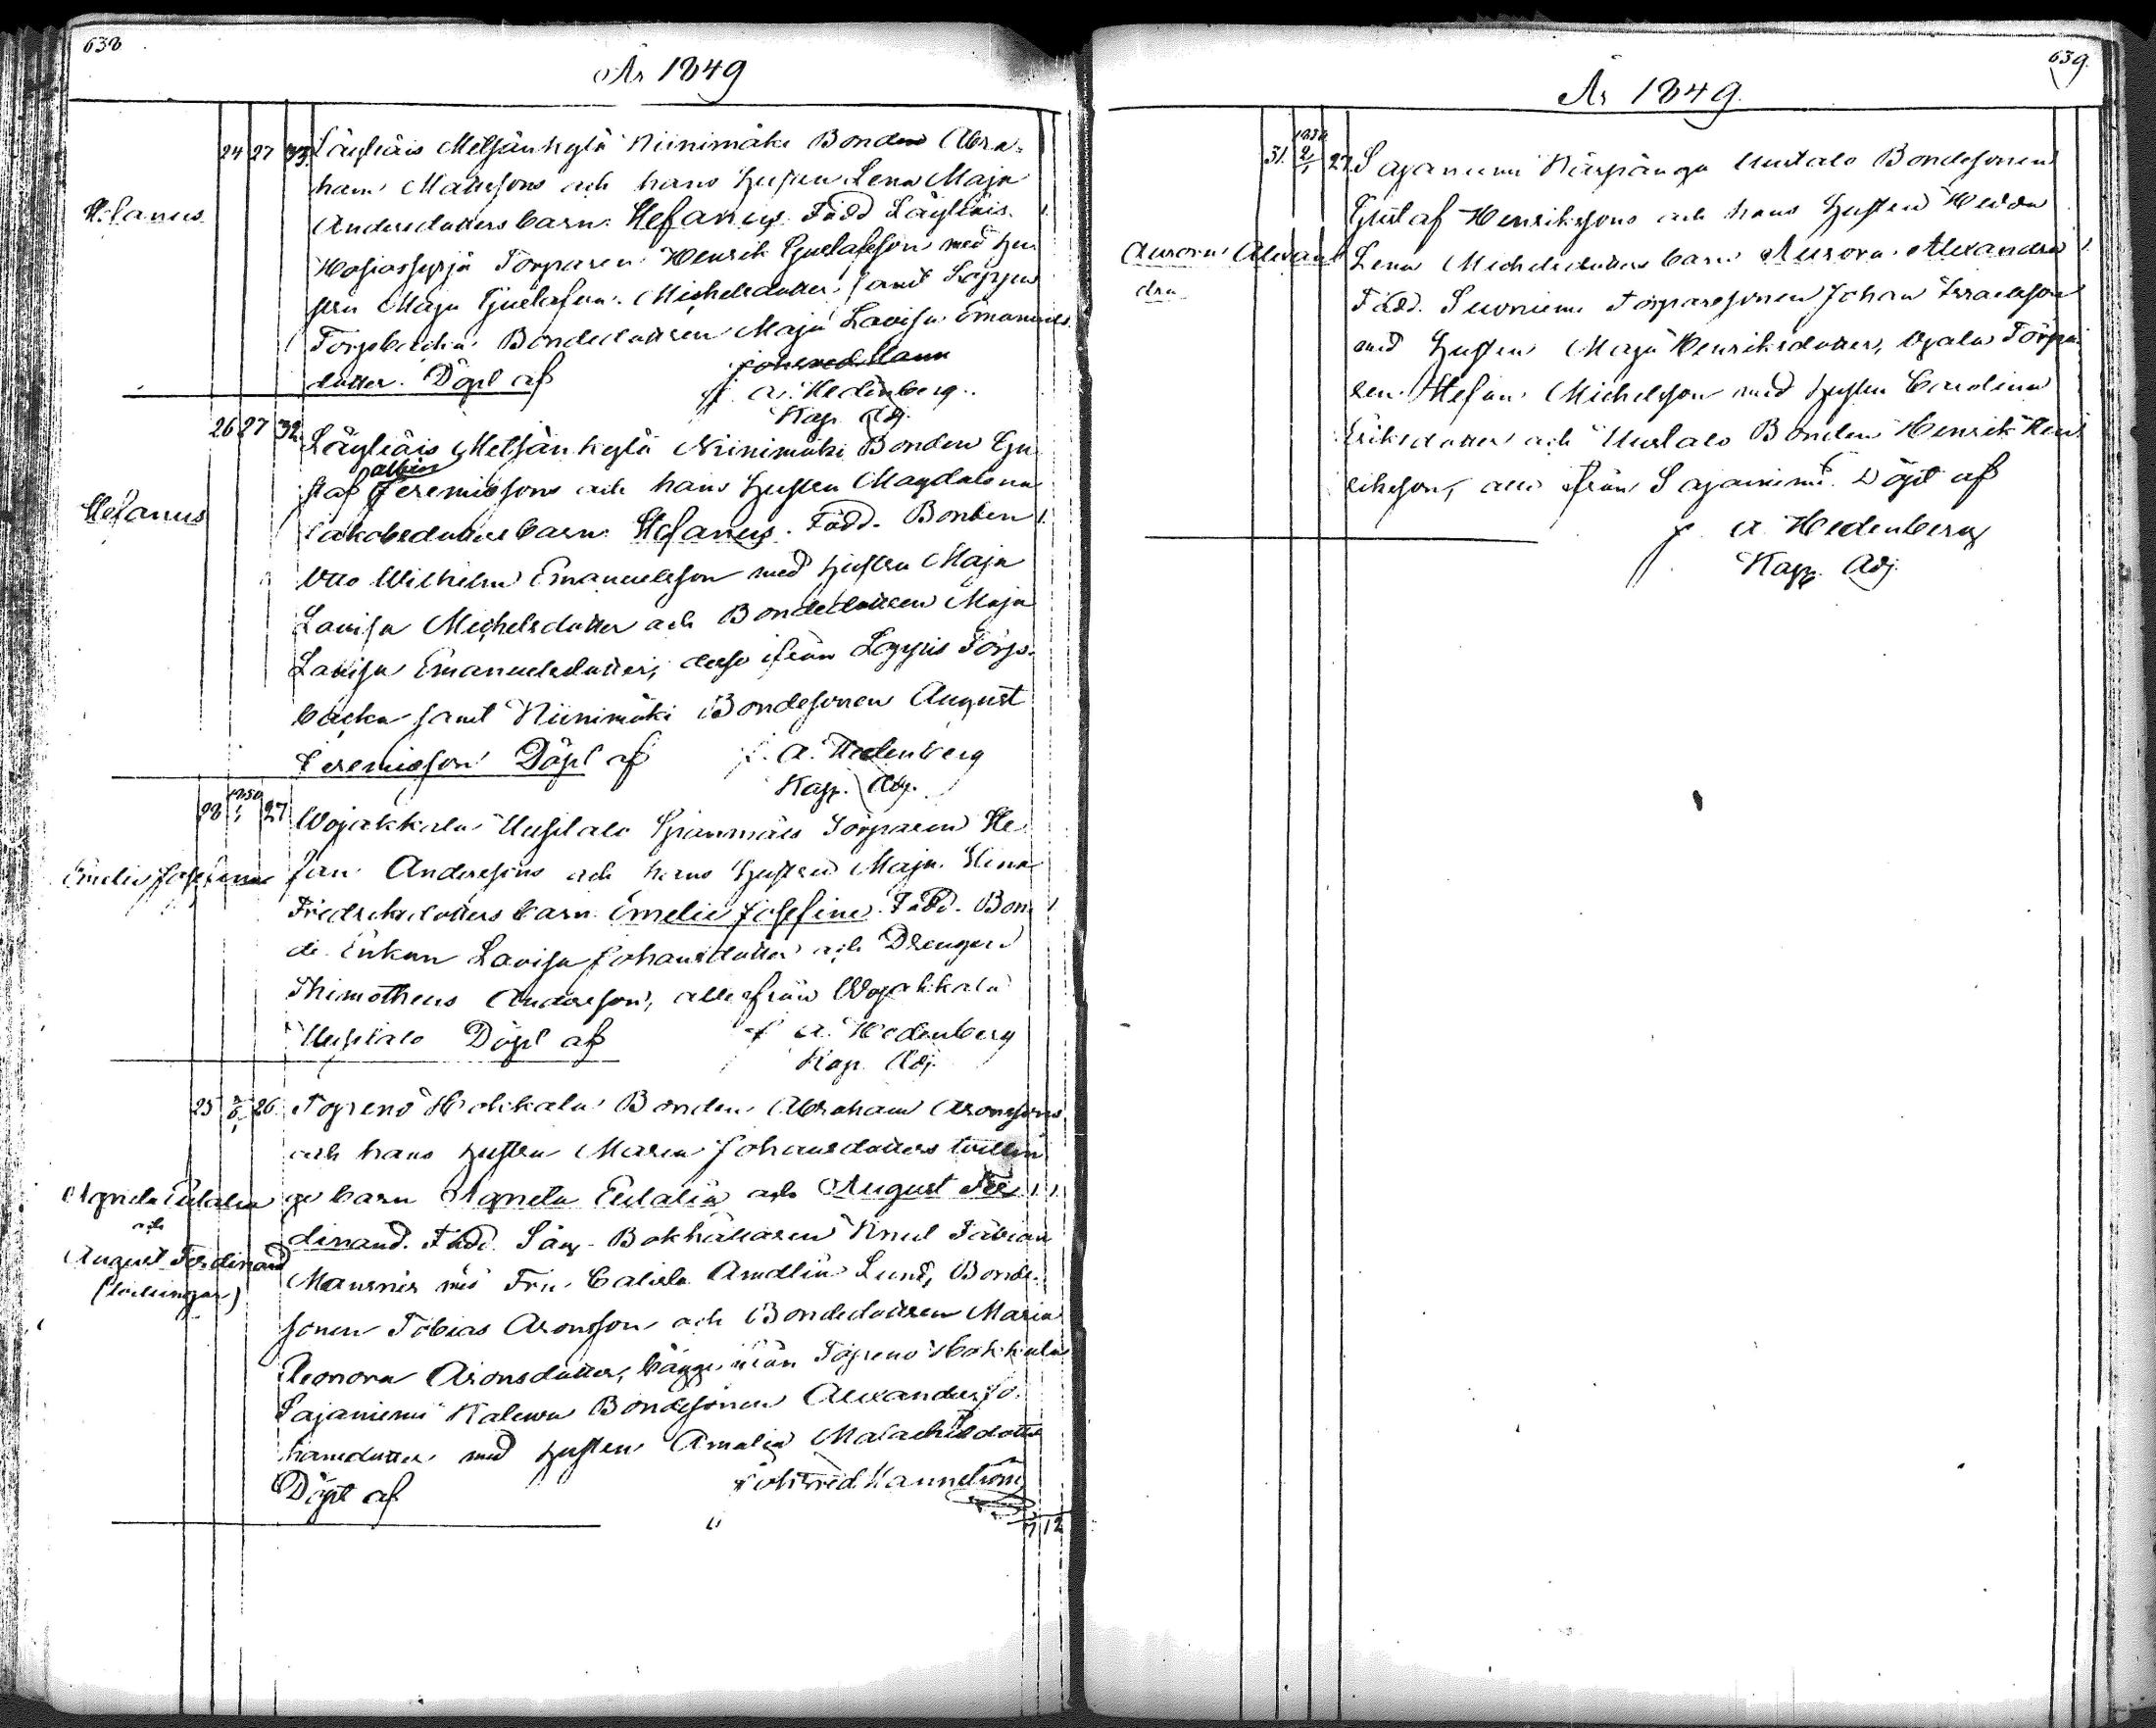 638
År 1849
24 27 33 Läyliäis Metsänkylä Niinimäki Bonden Abra-
ham Matssons och hans hustru Lena Maja
Stefanus
Andersdotters barn Stefanus. Fadd. Läyliäis
Hosiasseppä Torparen Henrik Gustafsson med hu-
stru Maja Gustafva Michelsdotter samt Loppis
Torpbacka Bondedottren Maja Lovisa Emanuels
dotter. Döpt af
A. Hedenberg
Kap. Adj.
26 27 32 Läyliäis Metsänkylä Niinimäki Bonden Gu-
staf Jeremiassons och hans hustru Magdalena
Stefanus
Jakobsdotters barn Stefanus. Fadd. Bonden
Otto Wilhelm Emanuelsson med hustru Maja
Lovisa Michelsdotter och Bondedottren Maja
Lovisa Emanuelsdotter, desse ifrån Loppis Torp-
backa samt Niinimäki Bondesonen August
Jeremiasson Döpt af
A. Hedenberg
Kapp. Adj.
28 1850 1/1 27 Wojakkala Uusitalo Torparen Ste-
Emelie Josefina
fan Anderssons och hans hustru Maja Stina
Fredriksdotters barn Emelie Josefine. Fadd. Bon-
de Enkan Lovisa Johansdotter och Drengen
Thimotheus Andersson, alle från Wojakkala
Uusitalo Döpt af
A. Hedenberg
Kap. Adj.
25 6/1 26 Topeno Hokkala Bonden Abraham Aronssons
och hans hustru Maria Johansdotters tvillin
Agneta Eulalia
ge barn Agneta Eulalia och August Fer
och
dinand. Fadd. Bokhållaren Knut Fabian
August Ferdinand
Maurnér med Fru Calista Amalia Lund, Bonde-
(tvillingar)
sonen Tobias Aronsson och Bondedottren Maria
Leonora Aronsdotter, bägge från Topeno Hokkala
Sajaniemi Kaleva Bondesonen Alexander Jo-
hansdotter med hustru Amalia Malachiasdotter
Döpt af
Joh Fred. Kannelström
7 12
639.
År 1849.
31. 1850 2/1 27 Sajaniemi Käspänga Uusitalo Bondesonen
Gustaf Henrikssons och hans hustru Hedda
Aurora Alexan
Lena Michelsdotters barn Aurora Alexandra
dra
Fadd. Suoniemi Torparesonen Johan Israelsson
med hustru Maja Henriksdotter, Ojala Torpa
ren Stefan Michelsson med hustru Carolina
Eriksdotter och Uusitalo Bonden Henrik Hen
riksson, alla från Sajaniemi. Döpt af
A. Hedenberg
Kapp. Adj.